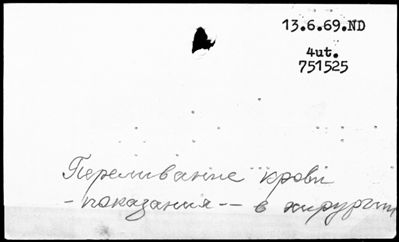 13.6.69.ND
4ut.
751525
Переливание крови
- показания -- в хирургии